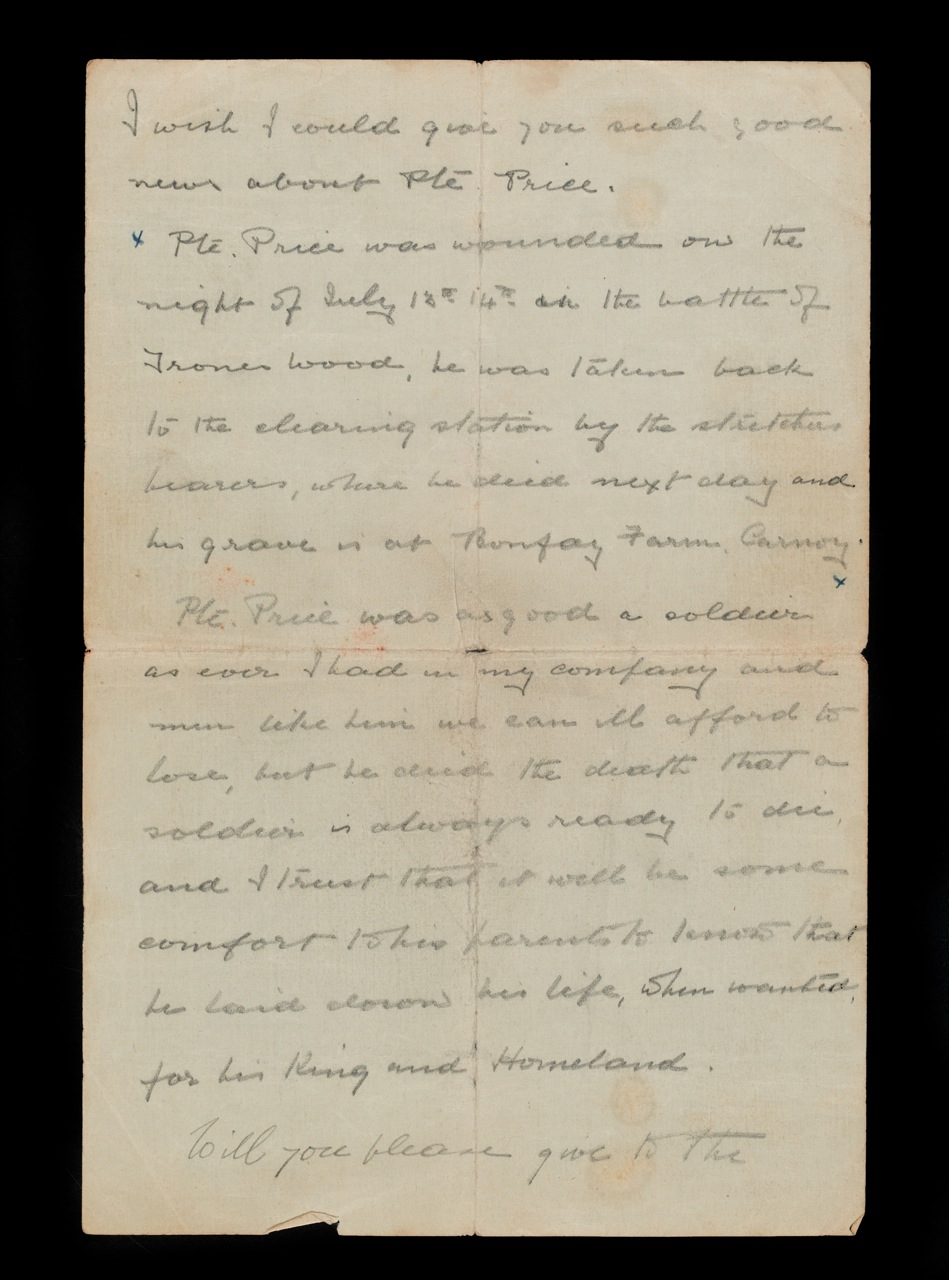 I wish I could give you such good
news about Pte Price.
x Pte. Price was wounded on the
night of July 13th 14th in the battle of
Trones Wood, he was taken back
to the clearing station by the stretcher
bearers, where he died next day and
his grave is at Bonfay Farm. Carnoy.
x
Pte. Price was as good a soldier
as ever I had in my company and
men like him we can ill afford to
lose, but he died the death that a
soldier is always ready to die,
and I trust that it will be some
comfort to his parents to know that
he laid down his life, when wanted,
for his King and Homeland.
Will you please give to the